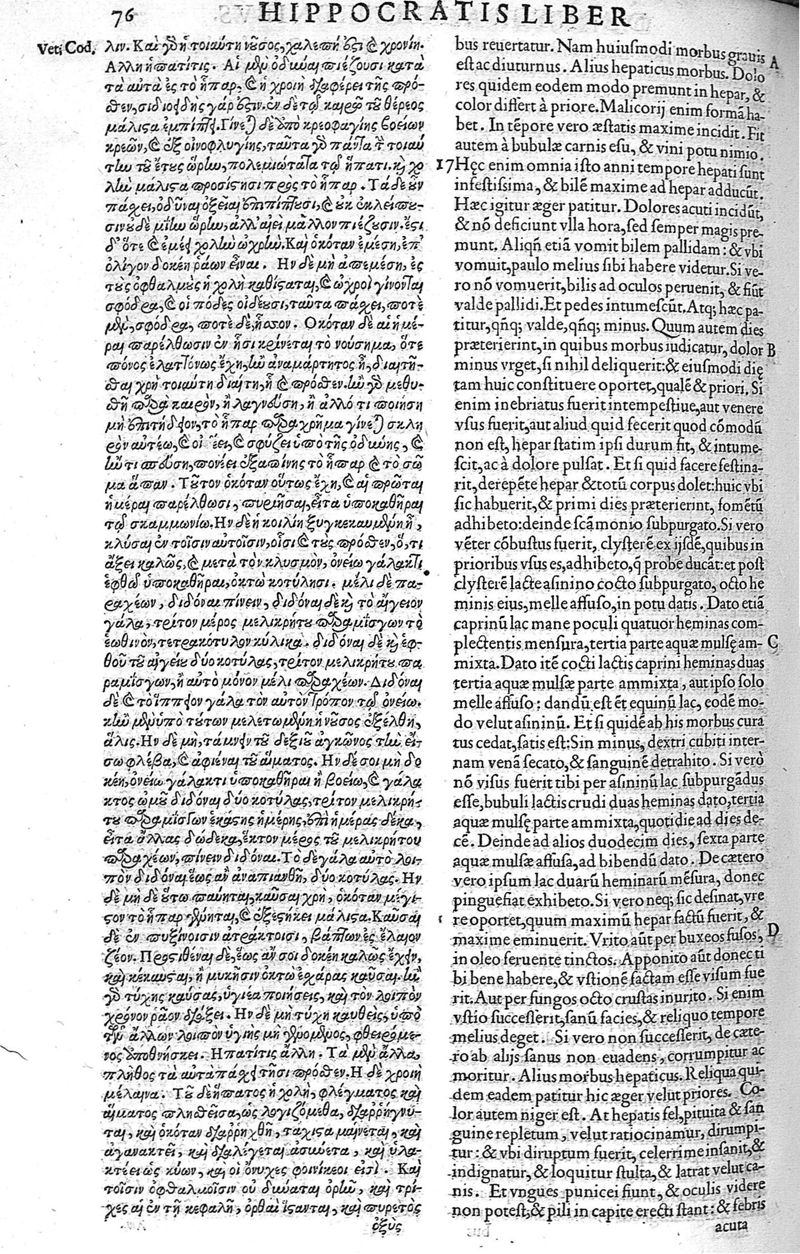 76 HIPPOCRATIS LIBER
Vet. Cod.
λιν. Καὶ γὸ ἡ τοιαύτη νοῦσος, χαλεπὴ ὅτι καὶ χρονίη.
Ἄλλη ἡπατῖτις. Αἱ μὲν ὀδύναι πιέζουσι κατὰ
ταὐτὰ ἐς τὸ ἧπαρ. καὶ ἡ χροιὴ διαφέρει τῆς πρό-
σθεν, σιδιοειδὴς γάρ ἐστιν. ἐν δὲ τῷ καιρῷ τοῦ θέρεος
μάλιστα ἐμπίπτει. Γίνεται δὲ ἀπὸ κρεοφαγίης βοείων
κρεῶν, καὶ ἐξ οἰνοφλυγίης, ταῦτα γὰρ πάντα τοιαύ
την τοῦ ἔτεος ὥρην, πολεμιώτατα τῷ ἥπατι. καὶ χο
λὴν μάλιστα προσίστησι πρὸς τὸ ἧπαρ. Τάδε οὖν
πάσχει, ὀδύναι ὀξεῖαι ἐμπίπτουσι, καὶ οὐκ ἐκλείπου-
σιν οὐδεμίην ὥρην, ἀλλ' αἰεὶ μᾶλλον πιέζουσιν. ἔστι
δ' ὅτε καὶ ἐμέει χολὴν ὠχρήν. Καὶ ὁκόταν ἐμέσῃ, ἐπ'
ὀλίγον δοκέει ῥᾴων εἶναι. Ἢν δὲ μὴ ἀπεμέσῃ, ἐς
τοὺς ὀφθαλμοὺς ἡ χολὴ καθίσταται, καὶ ὠχροὶ γίνονται
σφόδρα, καὶ οἱ πόδες οἰδέουσι, ταῦτα πάσχει, ποτὲ
μὲν, σφόδρα, ποτὲ δὲ, ἧσσον. Ὁκόταν δὲ αἱ ἡμέ-
ραι παρέλθωσιν ἐν ᾗσι κρίνεται τὸ νούσημα, ὅ τε
πόνος ἐλαττόνως ἔχῃ, ἢν ἀναμάρτητος ᾖ, διαιτῆ-
σθαι χρὴ τοιαύτῃ διαίτῃ, ᾗ καὶ πρόσθεν. ἢν γὰρ μεθυ-
σθῇ παρὰ καιρὸν, ἢ λαγνεύσῃ, ἢ ἄλλο τι ποιήσῃ
μὴ ἐπιτήδειον, τὸ ἧπαρ παραχρῆμα γίνεται σκλη
ρὸν αὐτέῳ, καὶ οἰδέει, καὶ σφύζει ὑπὸ τῆς ὀδύνης, καὶ
ἤν τι σπεύσῃ, πονέει ἐξαπίνης τὸ ἧπαρ καὶ τὸ σῶ
μα ἅπαν. Τοῦτον ὁκόταν οὕτως ἔχῃ, καὶ αἱ πρῶται
ἡμέραι παρέλθωσι, πυριῆσαι, εἶτα ὑποκαθῆραι
τῷ σκαμμωνίῳ. Ἢν δὲ ἡ κοιλίη ξυγκεκαυμένη ᾖ,
κλύσαι ἐν τοῖσιν αὐτοῖσιν, οἷσι καὶ τοὺς πρόσθεν, ὅ, τι
ἄξει καλῶς, καὶ μετὰ τὸν κλυσμὸν, ὀνείῳ γάλακτι
ἑφθῷ ὑποκαθῆραι, ὀκτὼ κοτύλησι. μέλι δὲ πα-
ραχέων, διδόναι πίνειν, διδόναι δὲ καὶ τὸ αἴγειον
γάλα, τρίτον μέρος μελικρήτου παραμίσγων τὸ
ἑωθινὸν, τετρακότυλον κύλικα. διδόναι δὲ καὶ ἑφ-
θοῦ τοῦ αἰγείου δύο κοτύλας, τρίτον μελικρήτου πα
ραμίσγων, ἢ αὐτὸ μόνον μέλι παραχέων. Διδόναι
δὲ καὶ τὸ ἵππειον γάλα τὸν αὐτὸν τρόπον τῷ ὀνείῳ.
κἢν μὲν ὑπὸ τούτων μελετωμένῃ ἡ νοῦσος ἐξέλθῃ,
ἅλις. Ἢν δὲ μὴ, τάμνειν τοῦ δεξιοῦ ἀγκῶνος τὴν εἴ-
σω φλέβα, καὶ ἀφιέναι τοῦ αἵματος. Ἢν δέ σοι μὴ δο
κέῃ, ὀνείῳ γάλακτι ὑποκαθῆραι ἢ βοείῳ, καὶ γάλα
κτος ὠμοῦ διδόναι δύο κοτύλας, τρίτον μελικρή-
του παραμίσγων ἑκάστης ἡμέρης, ἐπὶ ἡμέρας δέκα,
εἶτα ἄλλας δώδεκα, ἕκτον μέρος τοῦ μελικρήτου
παραχέων, πίνειν διδόναι. Τὸ δὲ γάλα αὐτὸ λοι-
πὸν διδόναι ἕως ἂν ἀναπιανθῇ, δύο κοτύλας. Ἢν
δὲ μὴ δὲ οὕτω παύηται, καῦσαι χρὴ, ὁκόταν μέγι-
στον τὸ ἧπαρ γένηται, καὶ ἐξεστήκει μάλιστα. Καῦσαι
δὲ ἐν πυξίνοισιν ἀτράκτοισι, βάπτων ἐς ἔλαιον
ζέον. Προστιθέναι δὲ, ἕως ἄν σοι δοκέῃ καλῶς ἔχειν,
καὶ κεκαῦσθαι, ἢ μύκησιν ὀκτὼ ἐσχάρας καῦσαι. ἢν
γὰρ τύχῃς καύσας, ὑγιέα ποιήσεις, καὶ τὸν λοιπὸν
χρόνον ῥᾷον διάξει. Ἢν δὲ μὴ τύχῃ καυθεὶς, ὑπὸ
τῶν ἄλλων λοιπὸν ὑγιὴς μὴ γενόμενος, φθειρόμε-
νος ἀποθνήσκει. Ἡπατῖτις ἄλλη. Τὰ μὲν ἄλλα,
πλῆθος τὰ αὐτὰ πάσχει τῇσι πρόσθεν. Ἡ δὲ χροιὴ
μέλαινα. Τοῦ δὲ ἥπατος ἡ χολὴ, φλέγματος καὶ
αἵματος πλησθεῖσα, ὡς λογιζόμεθα, διαρρήγνυ-
ται, καὶ ὁκόταν διαρραγῇ, τάχιστα μαίνεται, καὶ
ἀγανακτέει, καὶ διαλέγεται ἀσύνετα, καὶ ὑλα-
κτέει ὡς κύων, καὶ οἱ ὄνυχες φοινίκεοι εἰσί. Καὶ
τοῖσιν ὀφθαλμοῖσιν οὐ δύναται ὁρῆν, καὶ τρί-
χες αἱ ἐν τῇ κεφαλῇ, ὀρθαὶ ἵστανται, καὶ πυρετὸς
ὀξὺς
bus reuertatur. Nam huiusmodi morbus grauis
est ac diuturnus. Alius hepaticus morbus. Dolo A
res quidem eodem modo premunt in hepar, &
color differt à priore. Malicorij enim formã ha-
bet. In tẽpore vero æstatis maxime incidit. Fit
autem à bubulæ carnis esu, & vini potu nimio.
17 Hęc enim omnia isto anni tempore hepati sunt
infestissima, & bilẽ maxime ad hepar adducũt.
Hæc igitur æger patitur. Dolores acuti incidũt,
& nõ deficiunt vlla hora, sed semper magis pre-
munt. Aliqñ etiã vomit bilem pallidam: & vbi
vomuit, paulo melius sibi habere videtur. Si ve-
ro nõ vomuerit, bilis ad oculos peruenit, & fiũt
valde pallidi. Et pedes intumescũt. Atq; hæc pa-
titur, qñq; valde, qñq; minus. Quum autem dies
præterierint, in quibus morbus iudicatur, dolor B
minus vrget, si nihil deliquerit: & eiusmodi dię
tam huic constituere oportet, qualẽ & priori. Si
enim inebriatus fuerit intempestiue, aut venere
vsus fuerit, aut aliud quid fecerit quod cõmodũ
non est, hepar statim ipsi durum fit, & intume-
scit, ac à dolore pulsat. Et si quid facere festina-
rit, derepẽte hepar & totũ corpus dolet: huic vbi
sic habuerit, & primi dies præterierint, fomẽtũ
adhibeto: deinde scãmonio subpurgato. Si vero
vẽter cõbustus fuerit, clysterẽ ex ijsdẽ, quibus in
prioribus vsus es, adhibeto, q̃ probe ducãt: et post
clysterẽ lacte asinino cocto subpurgato, octo he
minis eius, melle affuso, in potu datis. Dato etiã
caprinũ lac mane poculi quatuor heminas com-
plectentis mensura, tertia parte aquæ mulsę am- C
mixta. Dato itẽ cocti lactis caprini heminas duas
tertia aquæ mulsæ parte ammixta, aut ipso solo
melle affuso: dandũ est et equinũ lac, eodẽ mo-
do velut asininũ. Et si quidẽ ab his morbus cura
tus cedat, satis est: Sin minus, dextri cubiti inter-
nam venã secato, & sanguinẽ detrahito. Si verò
nõ visus fuerit tibi per asininũ lac subpurgãdus
esse, bubuli lactis crudi duas heminas dato, tertia
aquæ mulsę parte ammixta, quotidie ad dies de-
cẽ. Deinde ad alios duodecim dies, sexta parte
aquæ mulsæ affusa, ad bibendũ dato. De cætero
vero ipsum lac duarũ heminarũ mẽsura, donec
pinguefiat exhibeto. Si vero neq; sic desinat, vre
re oportet, quum maximũ hepar factũ fuerit, &
maxime eminuerit. Vrito aũt per buxeos fusos, D
in oleo feruente tinctos. Apponito aũt donec ti
bi bene habere, & vstionẽ factam esse visum fue
rit. Aut per fungos octo crustas inurito. Si enim
vstio successerit, sanũ facies, & reliquo tempore
melius deget. Si vero non successerit, de cæte-
ro ab alijs sanus non euadens, corrumpitur ac
moritur. Alius morbus hepaticus. Reliqua qui-
dem eadem patitur hic æger velut priores. Co-
lor autem niger est. At hepatis fel, pituita & san
guine repletum, velut ratiocinamur, dirumpi-
tur: & vbi diruptum fuerit, celerrime insanit, &
indignatur, & loquitur stulta, & latrat velut ca-
nis. Et vngues punicei fiunt, & oculis videre
non potest, & pili in capite erecti stant: & febris
acuta